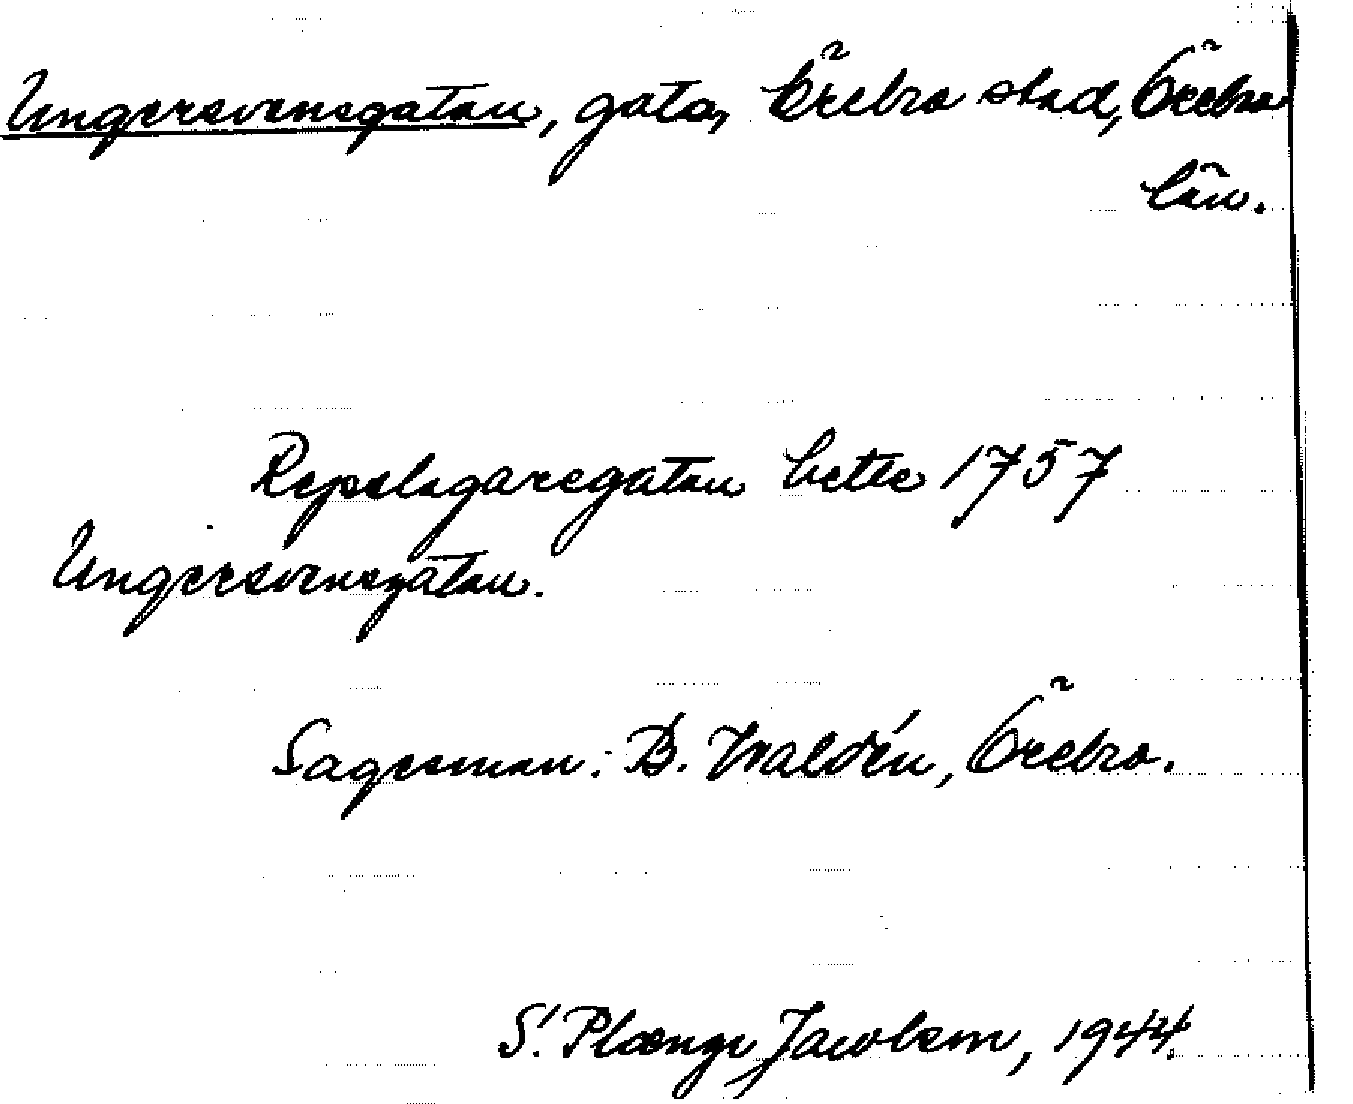 Ungersvensgatan, gata, Örebro stad, Örebro
län.
Repslagaregatan hette 1757
Ungersvensgatan.
Sagesman: B. Waldén, Örebro.
S. Plænge Jacobson, 1944.